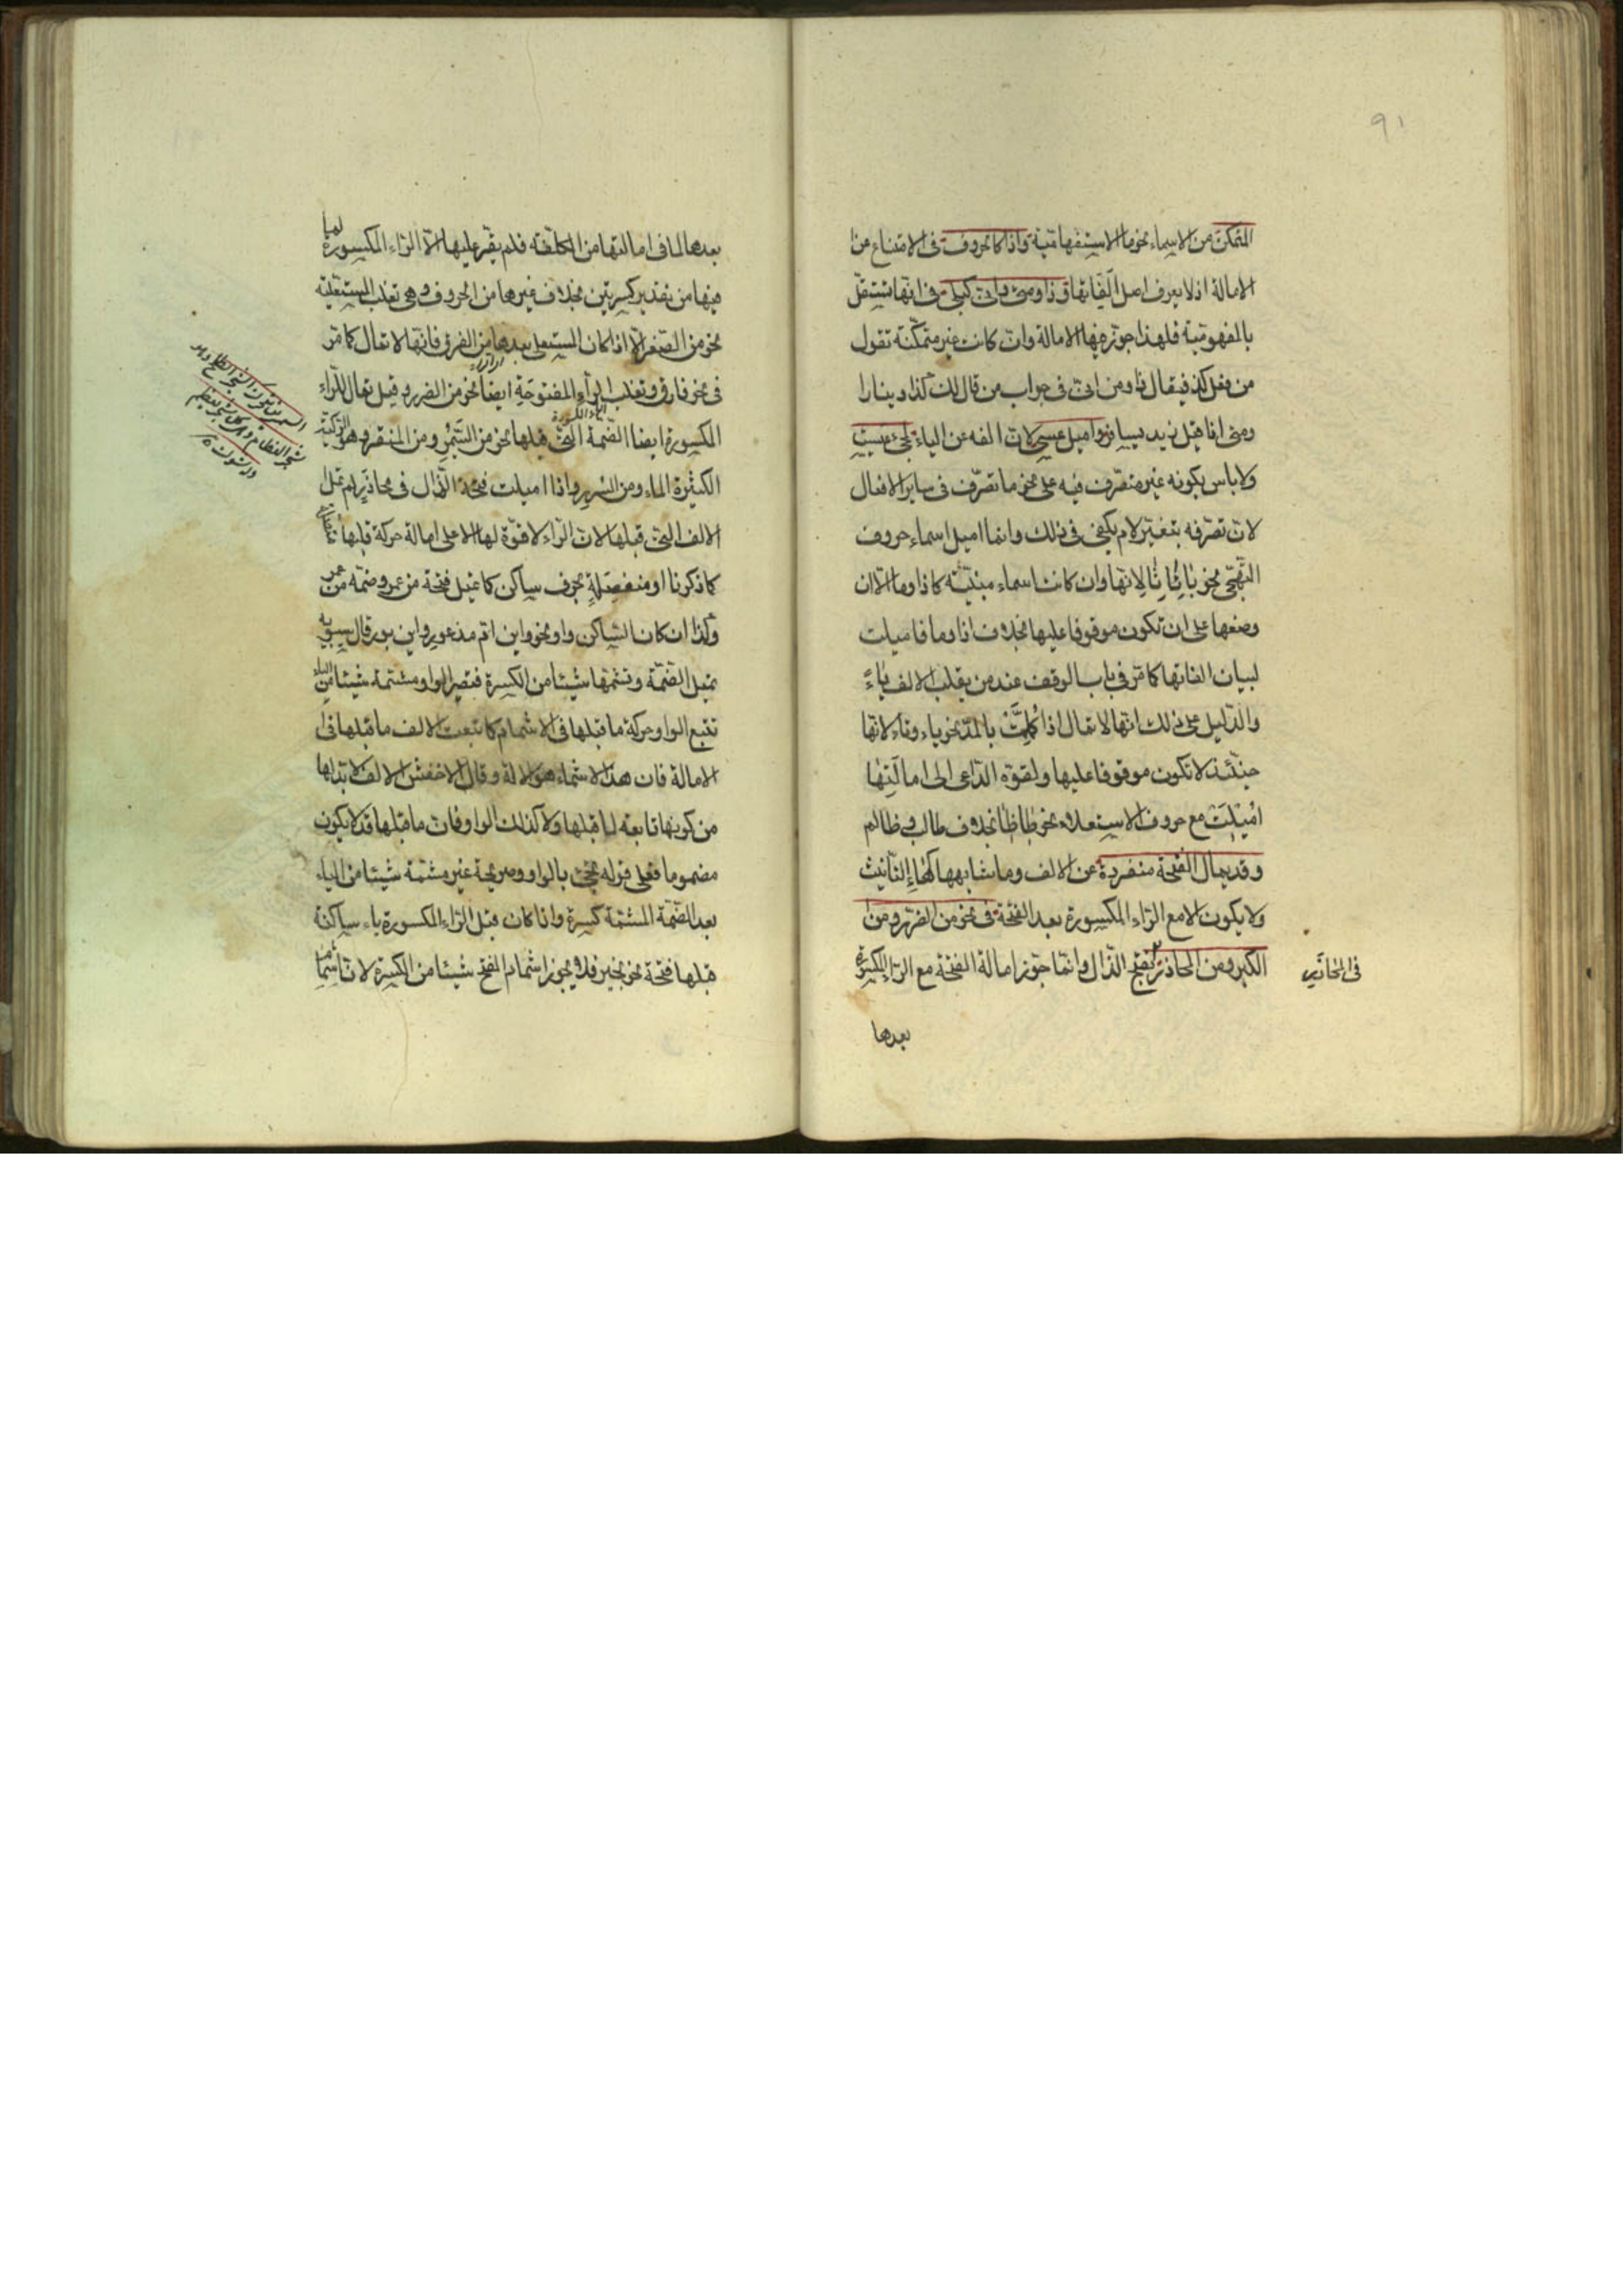 ٩١
المتمكن من الاسماء نحو ما الاستفهامية واذا كالحروف فى الامتناع من
الامالة اذ لا يعرف اصل الفاتها وذا ومتى وانى كبلى فى انها تستقل
بالمفهومية فلهذا جوز فيها الامالة وان كانت غير متمكنة تقول
من فعل كذا فيقال ذا ومن انى فى جواب من قال لك كذا دينارا
ومتى اذا قيل زيد يسافر واميل عسى لان الفه عن الياء لمجئ عسيت
ولا باس بكونه غير متصرف فيه على نحو ما تصرف فى ساير الافعال
لان تصرفه بتغير لام يكفى فى ذلك وانما اميل اسماء حروف
التهجى نحو با تا ثا لانها وان كانت اسماء مبنية كاذا وما الا ان
وضعها على ان تكون موقوفا عليها بخلاف اذا وما فاميلت
لبيان الفاتها كما مر فى باب الوقف عند من يقلب الالف ياء
والدليل على ذلك انها لا تمال اذا كملت بالمد نحو باء وتاء لانها
حينئذ لا تكون موقوفا عليها ولقوة الداعى الى امالتها
اميلت مع حروف الاستعلاء نحو طا ظا بخلاف طالب وظالم
وقد يمال الفتحة منفردة عن الالف وما شابهها كهاء التانيث
ولا يكون الا مع الراء المكسورة بعد الفتحة فى نحو من الضرر ومن
الكبر ومن المحاذر بفتح الذال وانما جوز امالة الفتحة مع الراء المكسورة
فى المحاذر
بعدها
بعدها لما فى امالتها من الكلفة فلم يقو عليها الا الراء المكسورة لما
فيها من تقدير كسرتين بخلاف غيرها من الحروف وهى تغلب المستعلية
نحو من الصغر الا اذا كان المستعلى بعدها من الفرق فانها لا تمال كما مر
فى نحو فارق وتغلب الراء المفتوحة ايضا نحو من الضرر وقيل تمال للراء
المكسورة ايضا الضمة التى قبلها نحو من السمر ومن المنقر وهو الركية
الكثيرة الماء ومن السرر واذا اميلت فتحة الذال فى محاذر لم تمل
الالف التى قبلها لان الراء لا قوة لها الا على امالة حركة قبلها
كما ذكرنا او منفصلة بحرف ساكن كما تميل فتحة من عمرو وضمة من
وكذا ان كان الساكن واو نحو ابن ام مذعور وابن بور قال سيبويه
تميل الضمة وتشمها شيئا من الكسرة فتصير الواو مشمة شيئا من الياء
تتبع الواو حركة ما قبلها فى الاشمام كما تبعت الالف ما قبلها فى
الامالة فان هذا الاشمام هو الامالة وقال الاخفش الالف لا بد لها
من كونها تابعة لما قبلها ولا كذلك الواو فان ما قبلها قد لا يكون
مضموما فعلى قوله تجئ بالواو صريحة غير مشمة شيئا من الياء
بعد الضمة المشمة كسرة واذا كان قبل الراء المكسورة ياء ساكنة
قبلها فتحة نحو بخير فلا يجوز اشمام الفتح شيئا من الكسرة لان اشمام